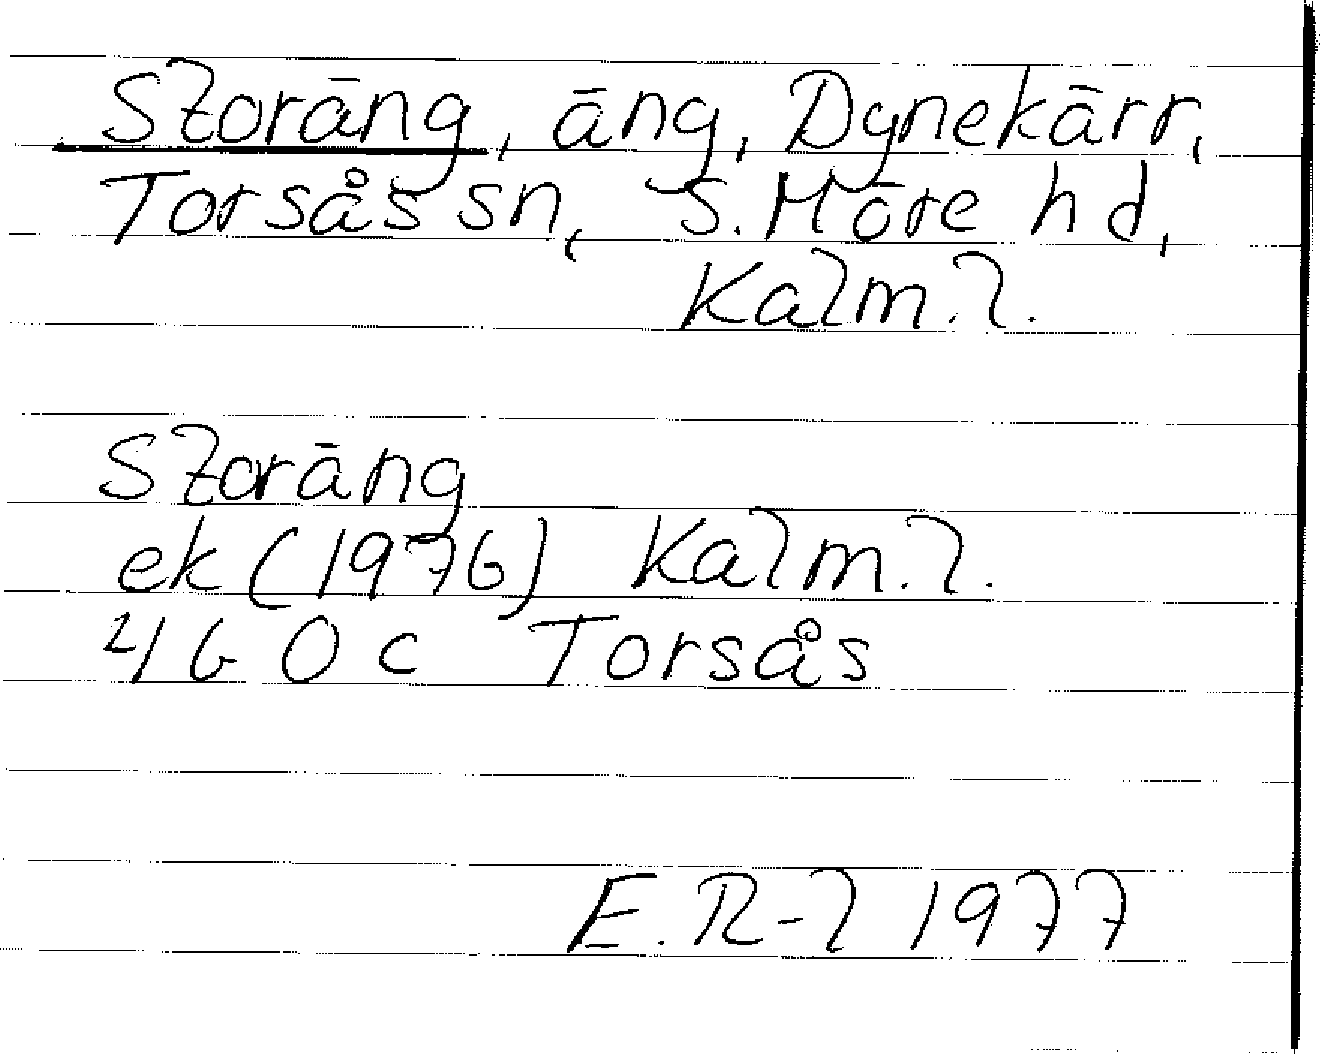 Sloräng, äng, Dynekärr,
Torsås sn, S. Möre hd,
Kalm. l.
Sloräng
ek (1976) Kalm. l.
4G 0c Torsås
E. R-l 1977